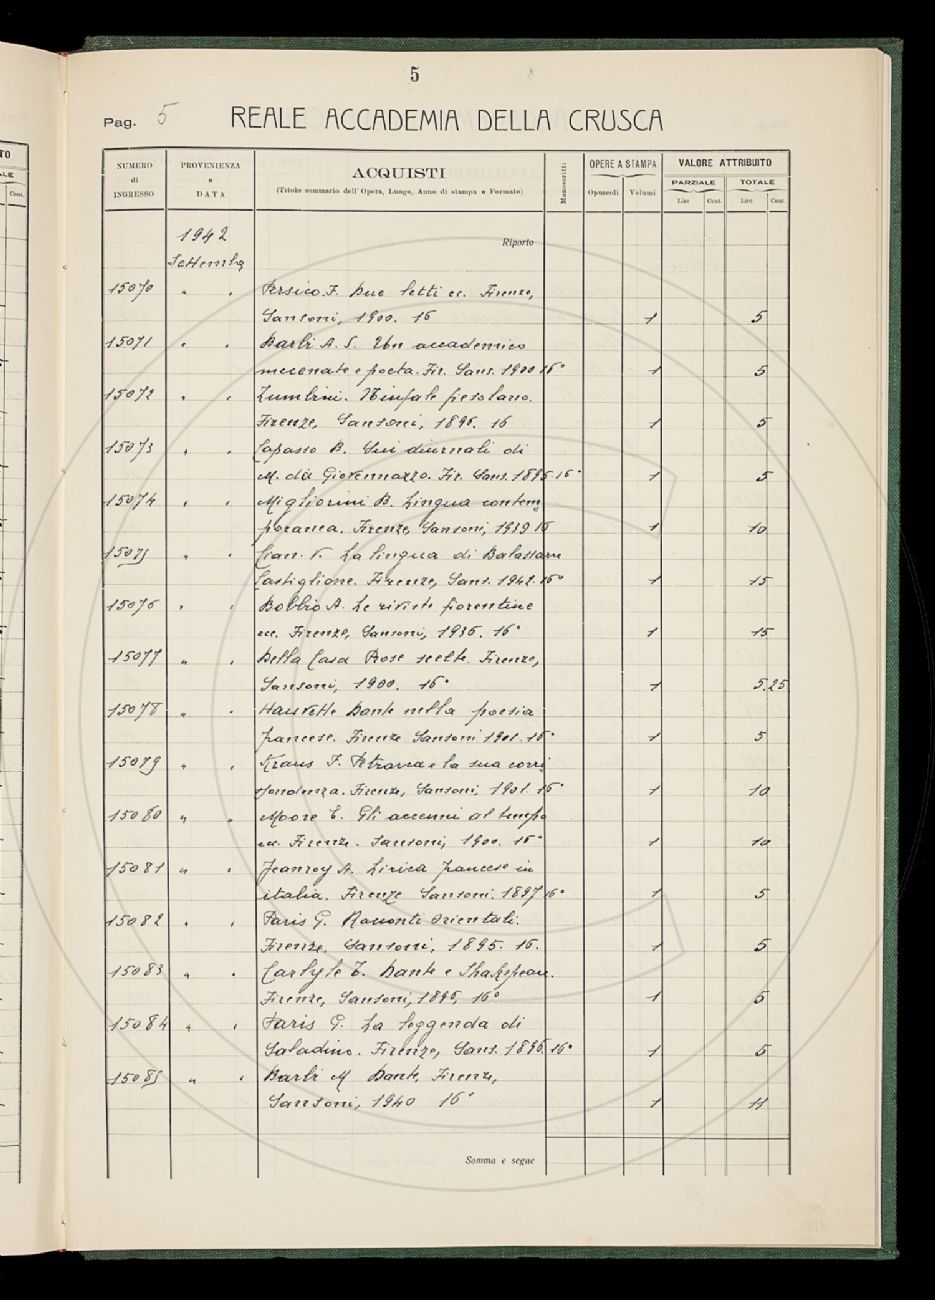 5
Pag. 5 REALE ACCADEMIA DELLA CRUSCA
NUMERO di INGRESSO
PROVENIENZA e DATA
ACQUISTI
(Titolo sommario dell'Opera, Luogo, Anno di stampa e Formato)
Manoscritti
OPERE A STAMPA
Opuscoli Volumi
VALORE ATTRIBUITO
PARZIALE TOTALE
Lire Cent. Lire Cent.
1942 Riporto
Settembre
15070 " " Persico F. Due letti ec. Firenze,
Sansoni, 1900. 16 1 5
15071 " " Barbi A. S. Un accademico
mecenate e poeta. Fir. Sans. 1900 16° 1 5
15072 " " Zumbini. Ninfale fiesolano.
Firenze, Sansoni, 1896. 16 1 5
15073 " " Capasso B. Sui diurnali di
M. da Giovennazzo. Fir. Sans. 1895 16° 1 5
15074 " " Migliorini B. Lingua contem=
poranea. Firenze, Sansoni, 1939 16 1 10
15075 " " Cian. V. La lingua di Baldassarre
Castiglione. Firenze, Sans. 1942. 16° 1 15
15076 " " Bobbio A. Le riviste fiorentine
ecc. Firenze, Sansoni, 1936. 16° 1 15
15077 " " Della Casa Prose scelte. Firenze,
Sansoni, 1900. 16° 1 5.25
15078 " " Hauvette Dante nella poesia
francese. Firenze Sansoni 1901. 16° 1 5
15079 " " Kraus F. Petrarca e la sua corri
spondenza. Firenze, Sansoni, 1901. 16° 1 10
15080 " " Moore E. Gli accenni al tempo
ecc. Firenze. Sansoni, 1900. 16° 1 10
15081 " " Jeanroy A. Lirica francese in
italia. Firenze Sansoni. 1897 16° 1 5
15082 " " Paris G. Racconti orientali.
Firenze, Sansoni, 1895. 16. 1 5
15083 " " Carlyle T. Dante e Shakspeare.
Firenze, Sansoni, 1896, 16° 1 5
15084 " " Paris G. La leggenda di
Saladino. Firenze, Sans. 1896. 16° 1 5
15085 " " Barbi M Dante, Firenze,
Sansoni, 1940 16° 1 11
Somma e segue